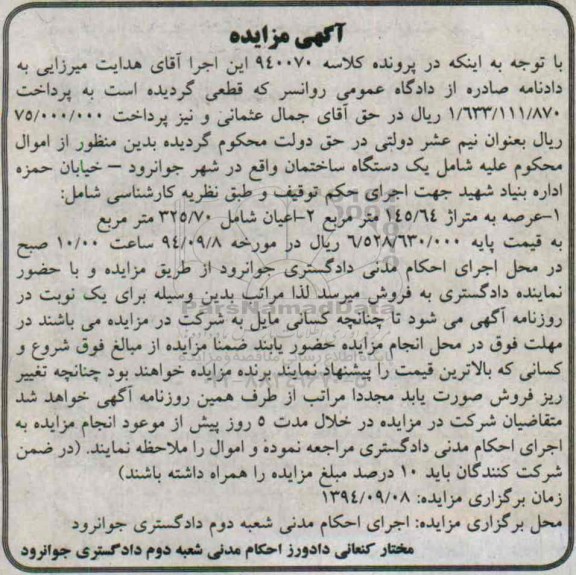 آگهی مزایده
با توجه به اینکه در پرونده کلاسه ۹۴۰۰۷۰ این اجرا آقای هدایت میرزایی به
دادنامه صادره از دادگاه عمومی روانسر که قطعی گردیده است به پرداخت
۱/۶۳۳/۱۱۱/۸۷۰ ریال در حق آقای جمال عثمانی و نیز پرداخت ۷۵/۰۰۰/۰۰۰
ریال بعنوان نیم عشر دولتی در حق دولت محکوم گردیده بدین منظور از اموال
محکوم علیه شامل یک دستگاه ساختمان واقع در شهر جوانرود – خیابان حمزه
اداره بنیاد شهید جهت اجرای حکم توقیف و طبق نظریه کارشناسی شامل:
۱-عرصه به متراژ ۱۴۵/۶۴ متر مربع ۲-اعیان شامل ۳۲۵/۷۰ متر مربع
به قیمت پایه ۶/۵۲۸/۶۳۰/۰۰۰ ریال در مورخه ۹۴/۰۹/۸ ساعت ۱۰/۰۰ صبح
در محل اجرای احکام مدنی دادگستری جوانرود از طریق مزایده و با حضور
نماینده دادگستری به فروش میرسد لذا مراتب بدین وسیله برای یک نوبت در
روزنامه آگهی می شود تا چنانچه کسانی مایل به شرکت در مزایده می باشند در
مهلت فوق در محل انجام مزایده حضور یابند ضمنا مزایده از مبالغ فوق شروع و
کسانی که بالاترین قیمت را پیشنهاد نمایند برنده مزایده خواهند بود چنانچه تغییر
ریز فروش صورت یابد مجددا مراتب از طرف همین روزنامه آگهی خواهد شد
متقاضیان شرکت در مزایده در خلال مدت ۵ روز پیش از موعود انجام مزایده به
اجرای احکام مدنی دادگستری مراجعه نموده و اموال را ملاحظه نمایند. (در ضمن
شرکت کنندگان باید ۱۰ درصد مبلغ مزایده را همراه داشته باشند)
زمان برگزاری مزایده: ۱۳۹۴/۰۹/۰۸
محل برگزاری مزایده: اجرای احکام مدنی شعبه دوم دادگستری جوانرود
مختار کنعانی دادورز احکام مدنی شعبه دوم دادگستری جوانرود
ParsNamadData